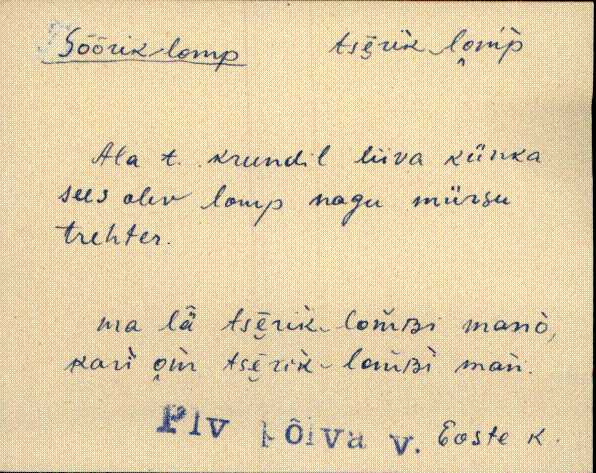 Sõõrik-lomp tsē̮rik-lomp
Ala t. krundil liiva künka
sees olev lomp nagu mürsu
trehter.
ma lä̂ tsē̮rik-lom̆ʙi manò,
kari om tsē̮rik-lom̆ʙi man.
Plv Põlva v. Eoste k.